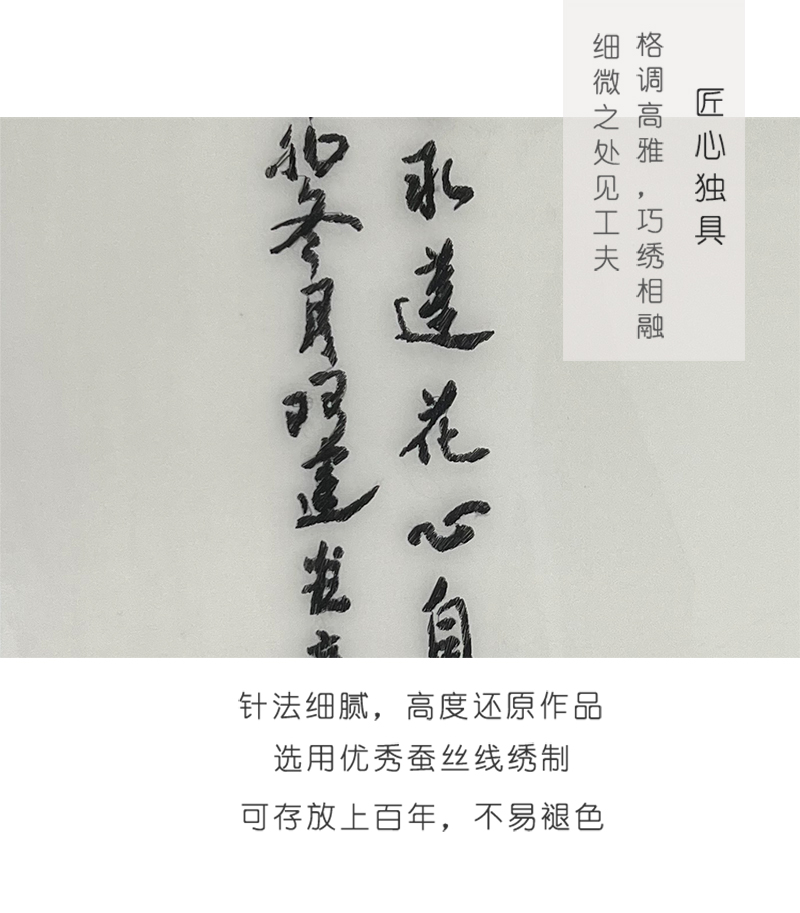 匠心独具
格调高雅，巧绣相融
细微之处见工夫
莲花心自
冬月 莲
针法细腻，高度还原作品
选用优秀蚕丝线绣制
可存放上百年，不易褪色